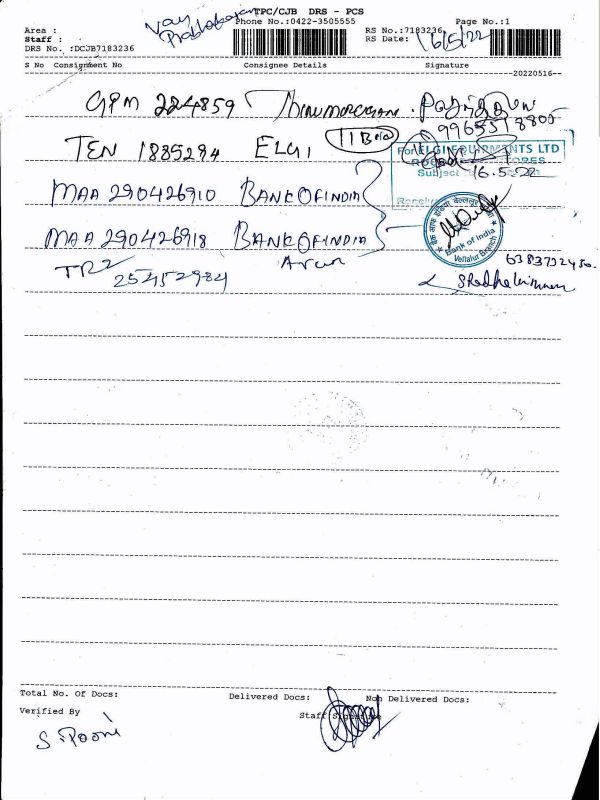 TPC/CJB DRS - PCS
Phone No.:0422-3505555
Page No.:1
Area :
RS No.:7183236
Staff :
RS Date: 16/5/22
DRS No. :DCJB7183236
S No Consignment No Consignee Details Signature
--20220516--
GPM 224859
99655 18805
TEN 1885294 ELGI
For ELGI EQUIPMENTS LTD
STORES
Subject
16.5.22
MAA 290426910 BANK OF INDIA
MAA 290426918 BANK OF INDIA
Bank of India
Vellalur Branch
TRZ Arun
25452984
6383732450.
Total No. Of Docs: Delivered Docs: Non Delivered Docs:
Verified By Staff Signature